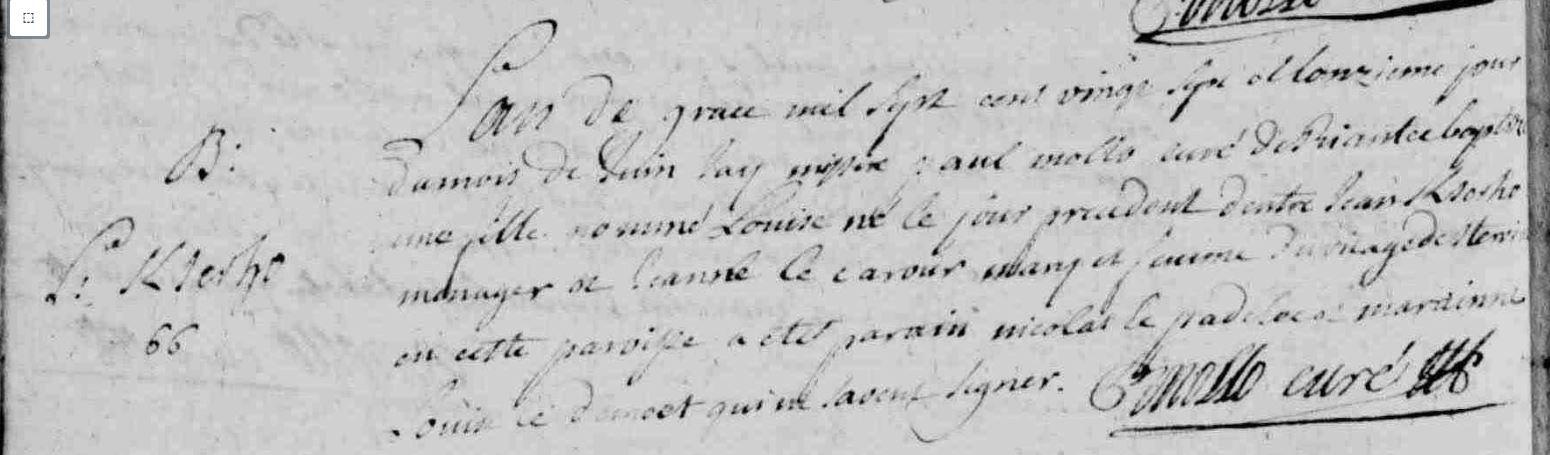 Lan de grace mil sept cent vingt sept et lonzieme jour
B: dumois de Juin Jay missire paul mollo curé de Priantec baptize
une fille nommé Louise né le jour precedent dentre Jean Ktosho
L: Ktosho menager et Jeanne le carour mary et femme du vilage de
66 en cette paroisse a eté parain nicolas le padeloc et marainne
Louise le qui ne savent signer. P: mollo curé